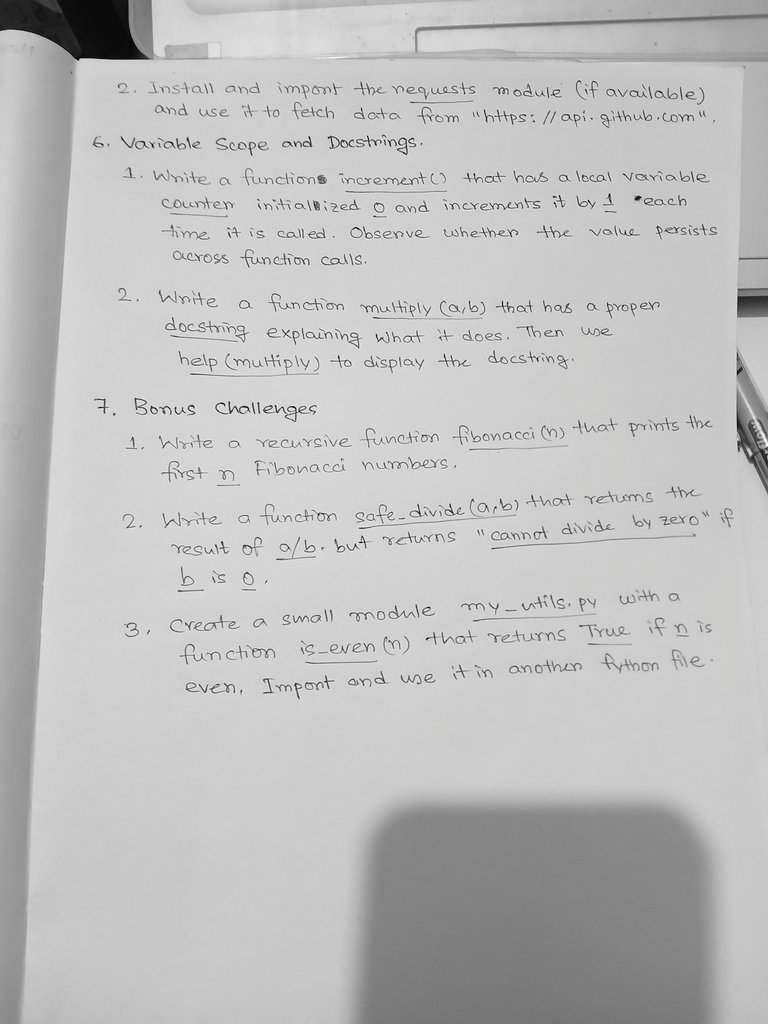 2. Install and import the requests module (if available)
and use it to fetch data from "https://api.github.com".
6. Variable Scope and Docstrings.
1. Write a function increment() that has a local variable
counter initialized 0 and increments it by 1 each
time it is called. Observe whether the value persists
across function calls.
2. Write a function multiply (a,b) that has a proper
docstring explaining what it does. Then use
help (multiply) to display the docstring.
7. Bonus Challenges
1. Write a recursive function fibonacci (n) that prints the
first n Fibonacci numbers.
2. Write a function safe_divide (a,b) that returns the
result of a/b, but returns "cannot divide by zero" if
b is 0.
3. Create a small module my_utils.py with a
function is_even (n) that returns True if n is
even. Import and use it in another Python file.